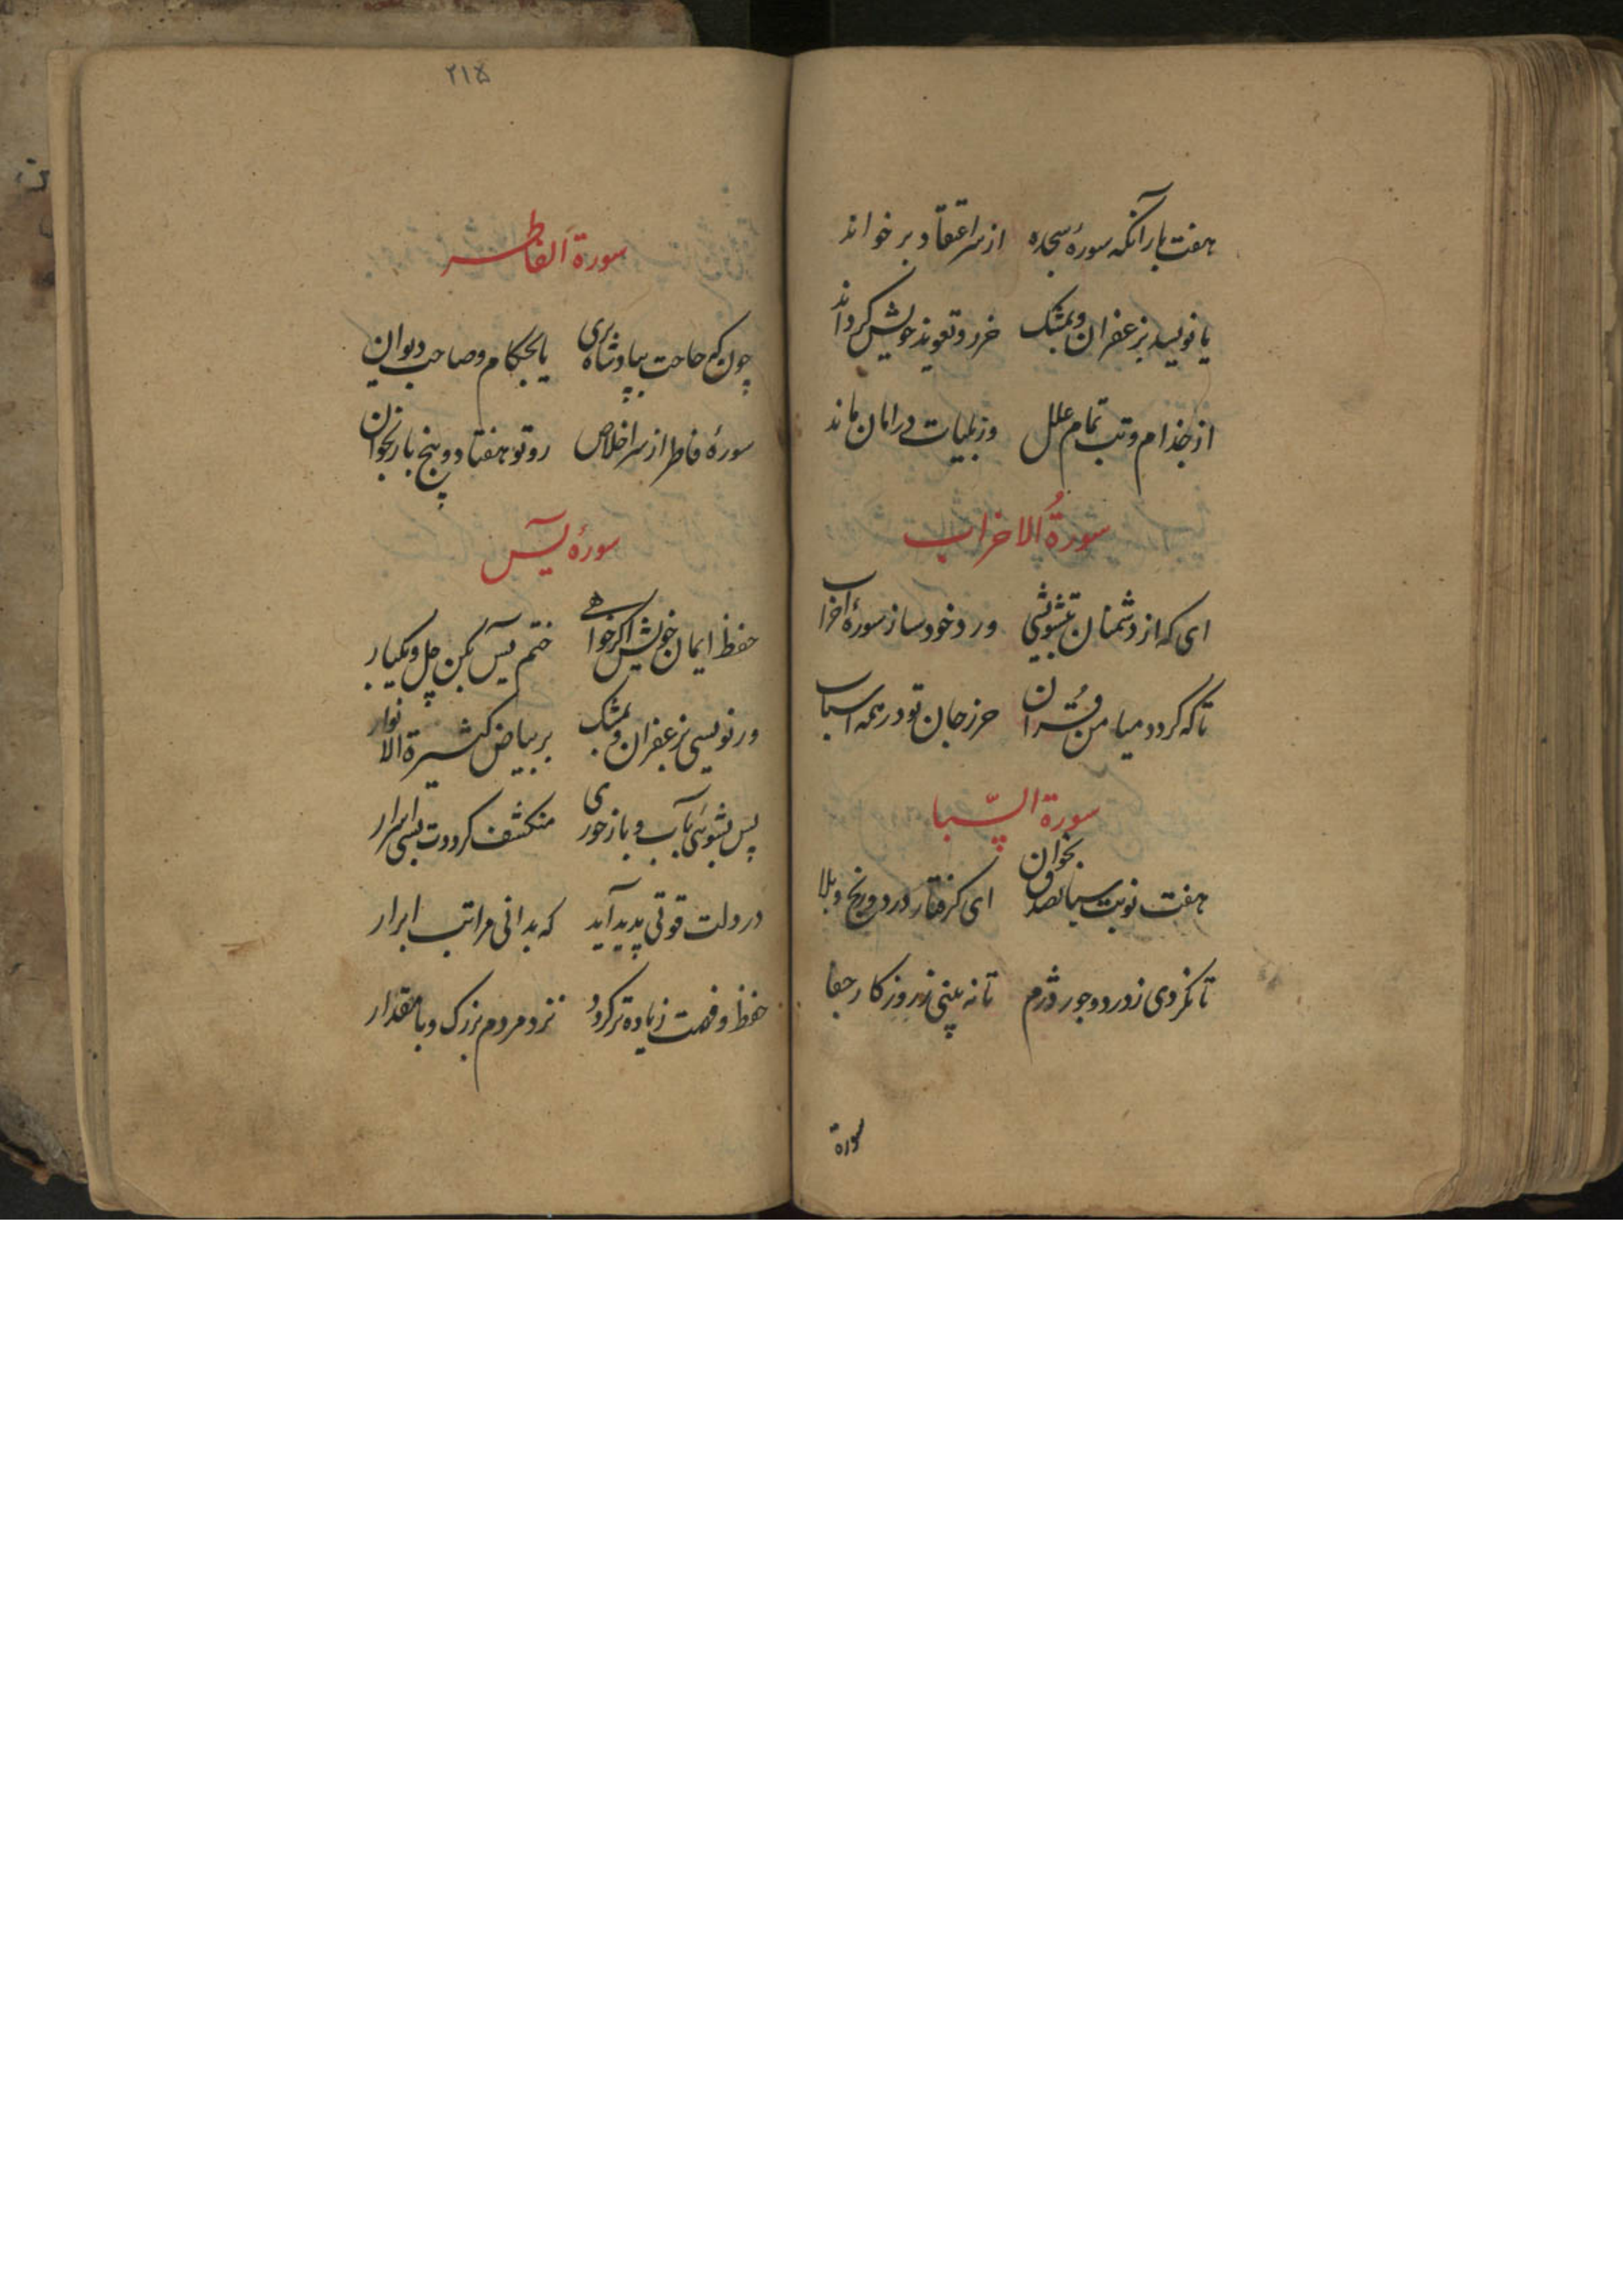 هفت بار آنکه سورهٔ سجده از سر اعتقاد برخواند
یا نویسد بزعفران و بمشک خرد و تعویذ خویش کرداند
از جذام و تب تمام علل وز بلیات در امان ماند
سورةُ الاحزاب
ای که از دشمنان بتشویشی ورد خود ساز سورهٔ احزاب
تا که کردد میامن قُران حرز جان تو در همه اسباب
سورة السّبا
هفت نوبت سبا بصدق بخوان ای کرفتار درد و رنج و بلا
تا نکردی ز درد و جور دژم تا نه بینی ز روزکار جفا
سورة
۲۱۵
سورة الفاطر
چون که حاجت بپادشاه بری یا بحکام و صاحب دیوان
سورهٔ فاطر از سر اخلاص رو تو هفتاد و پنج بار بخوان
سورهٔ یٓس
حفظ ایمان خویش اکر خواهے ختم یٓس بکن چل و یکبار
ور نویسی بزعفران و بمشک بر بیاض کثیرة الانوار
پس بشوئی بآب و باز خوری منکشف کرددت بسی اسرار
در دلت قوتی پدید آید که بدانی مراتب ابرار
حفظ و فهمت زیاده تر کردد نزد مردم بزرک و با مقدار